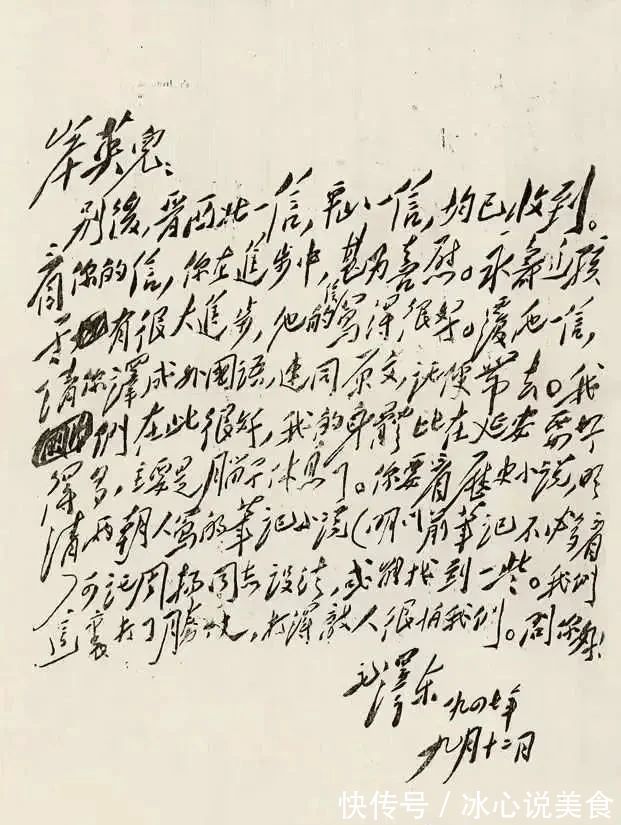 岸英兒:
別後,晋西北一信,平山一信,均已收到。
看你的信,你在進步中,甚为喜慰。永壽这孩
子有很大進步,他的信寫得很好。復他一信,
請你譯成外國語,連同原文,託便帶去。我
们在此很好,我的身體比在延安要好
得多,主要是腦子休息了。你要看歷史小説,明
清兩朝人寫的筆記小説(明以前筆记不必多看)
可託周揚同志設法,或能找到一些。我们
這裏打了勝仗,打得敵人很怕我们。問你好!
毛澤东
一九四七年
九月十二日
快传号/冰心说美食